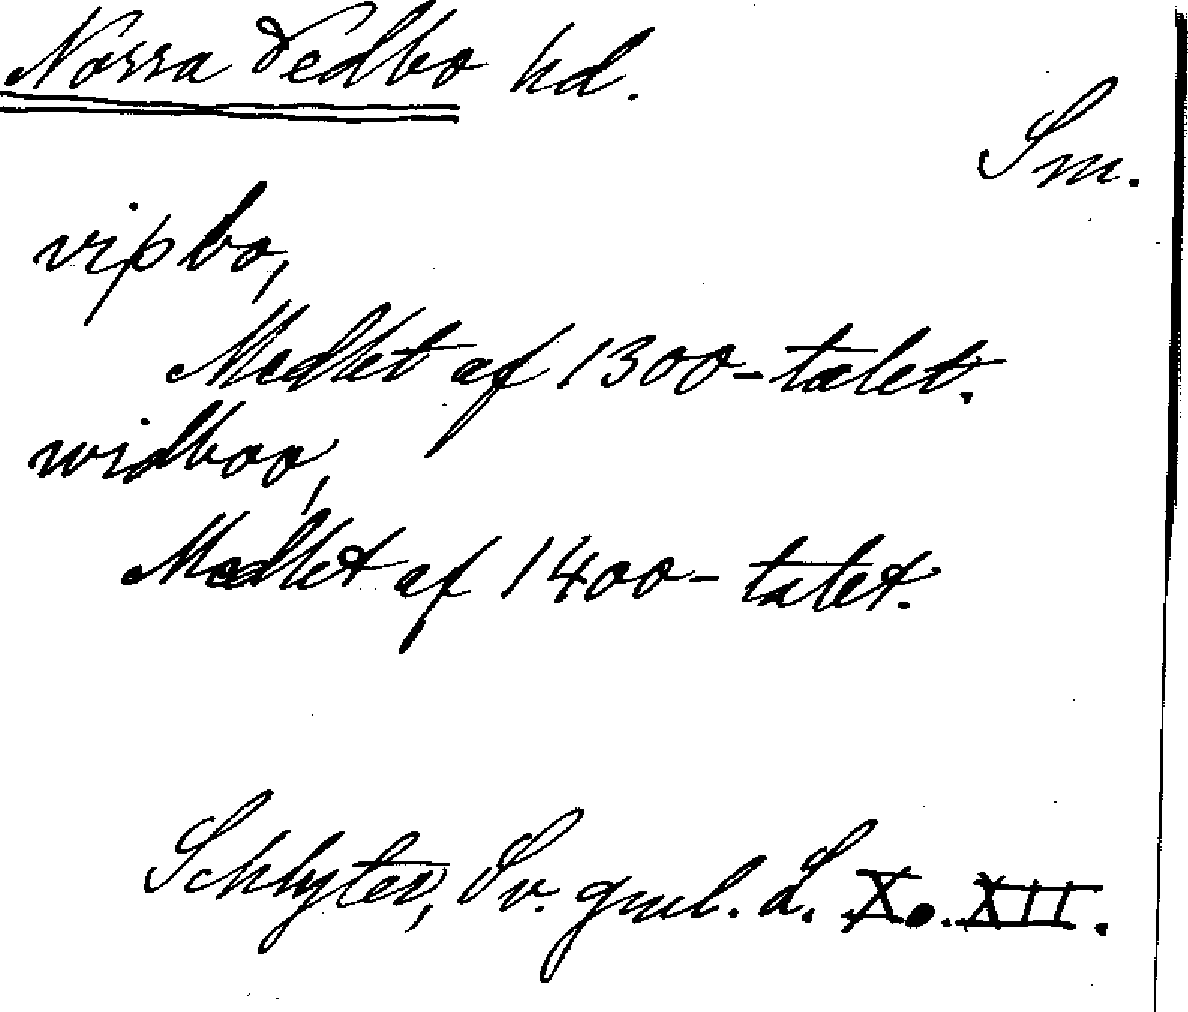 Norra Vedbo hd.
Sm.
viþbo,
Medlet af 1300-talet.
widboo,
Medlet af 1400-talet.
Schlyter, Sv. gml. L. X. XII.